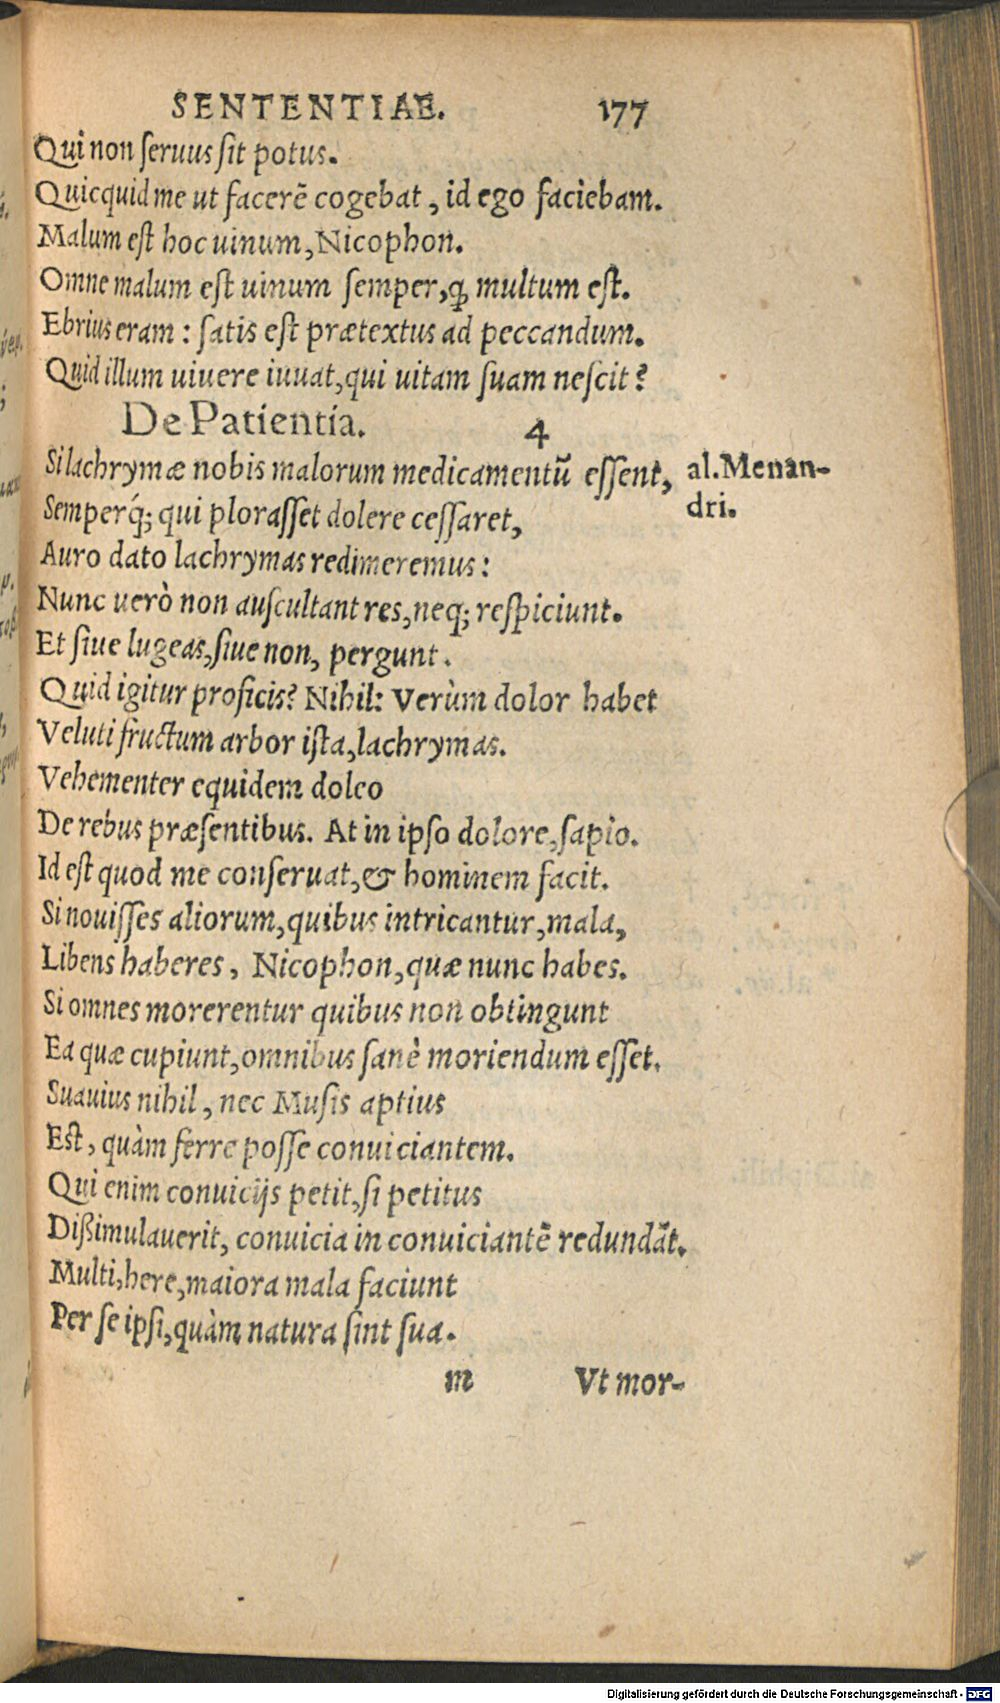 SENTENTIAE. 177
Qui non seruus sit potus.
Quicquid me ut facerẽ cogebat, id ego faciebam.
Malum est hoc uinum, Nicophon.
Omne malum est uinum semper, q multum est.
Ebrius eram: satis est prætextus ad peccandum.
Quid illum uiuere iuuat, qui uitam suam nescit?
De Patientia. 4
Si lachrymæ nobis malorum medicamentũ essent,
al. Menan-
dri.
Semperq́; qui plorasset dolere cessaret,
Auro dato lachrymas redimeremus:
Nunc uerò non auscultant res, neq; respiciunt.
Et siue lugeas, siue non, pergunt.
Quid igitur proficis? Nihil: Verùm dolor habet
Veluti fructum arbor ista, lachrymas.
Vehementer equidem doleo
De rebus præsentibus. At in ipso dolore, sapio.
Id est quod me conseruat, & hominem facit.
Si nouisses aliorum, quibus intricantur, mala,
Libens haberes, Nicophon, quæ nunc habes.
Si omnes morerentur quibus non obtingunt
Ea quæ cupiunt, omnibus sanè moriendum esset.
Suauius nihil, nec Musis aptius
Est, quàm ferre posse conuiciantem.
Qui enim conuicijs petit, si petitus
Dißimulauerit, conuicia in conuiciantẽ redundãt.
Multi, here, maiora mala faciunt
Per se ipsi, quàm natura sint sua.
m Vt mor-
Digitalisierung gefördert durch die Deutsche Forschungsgemeinschaft - DFG